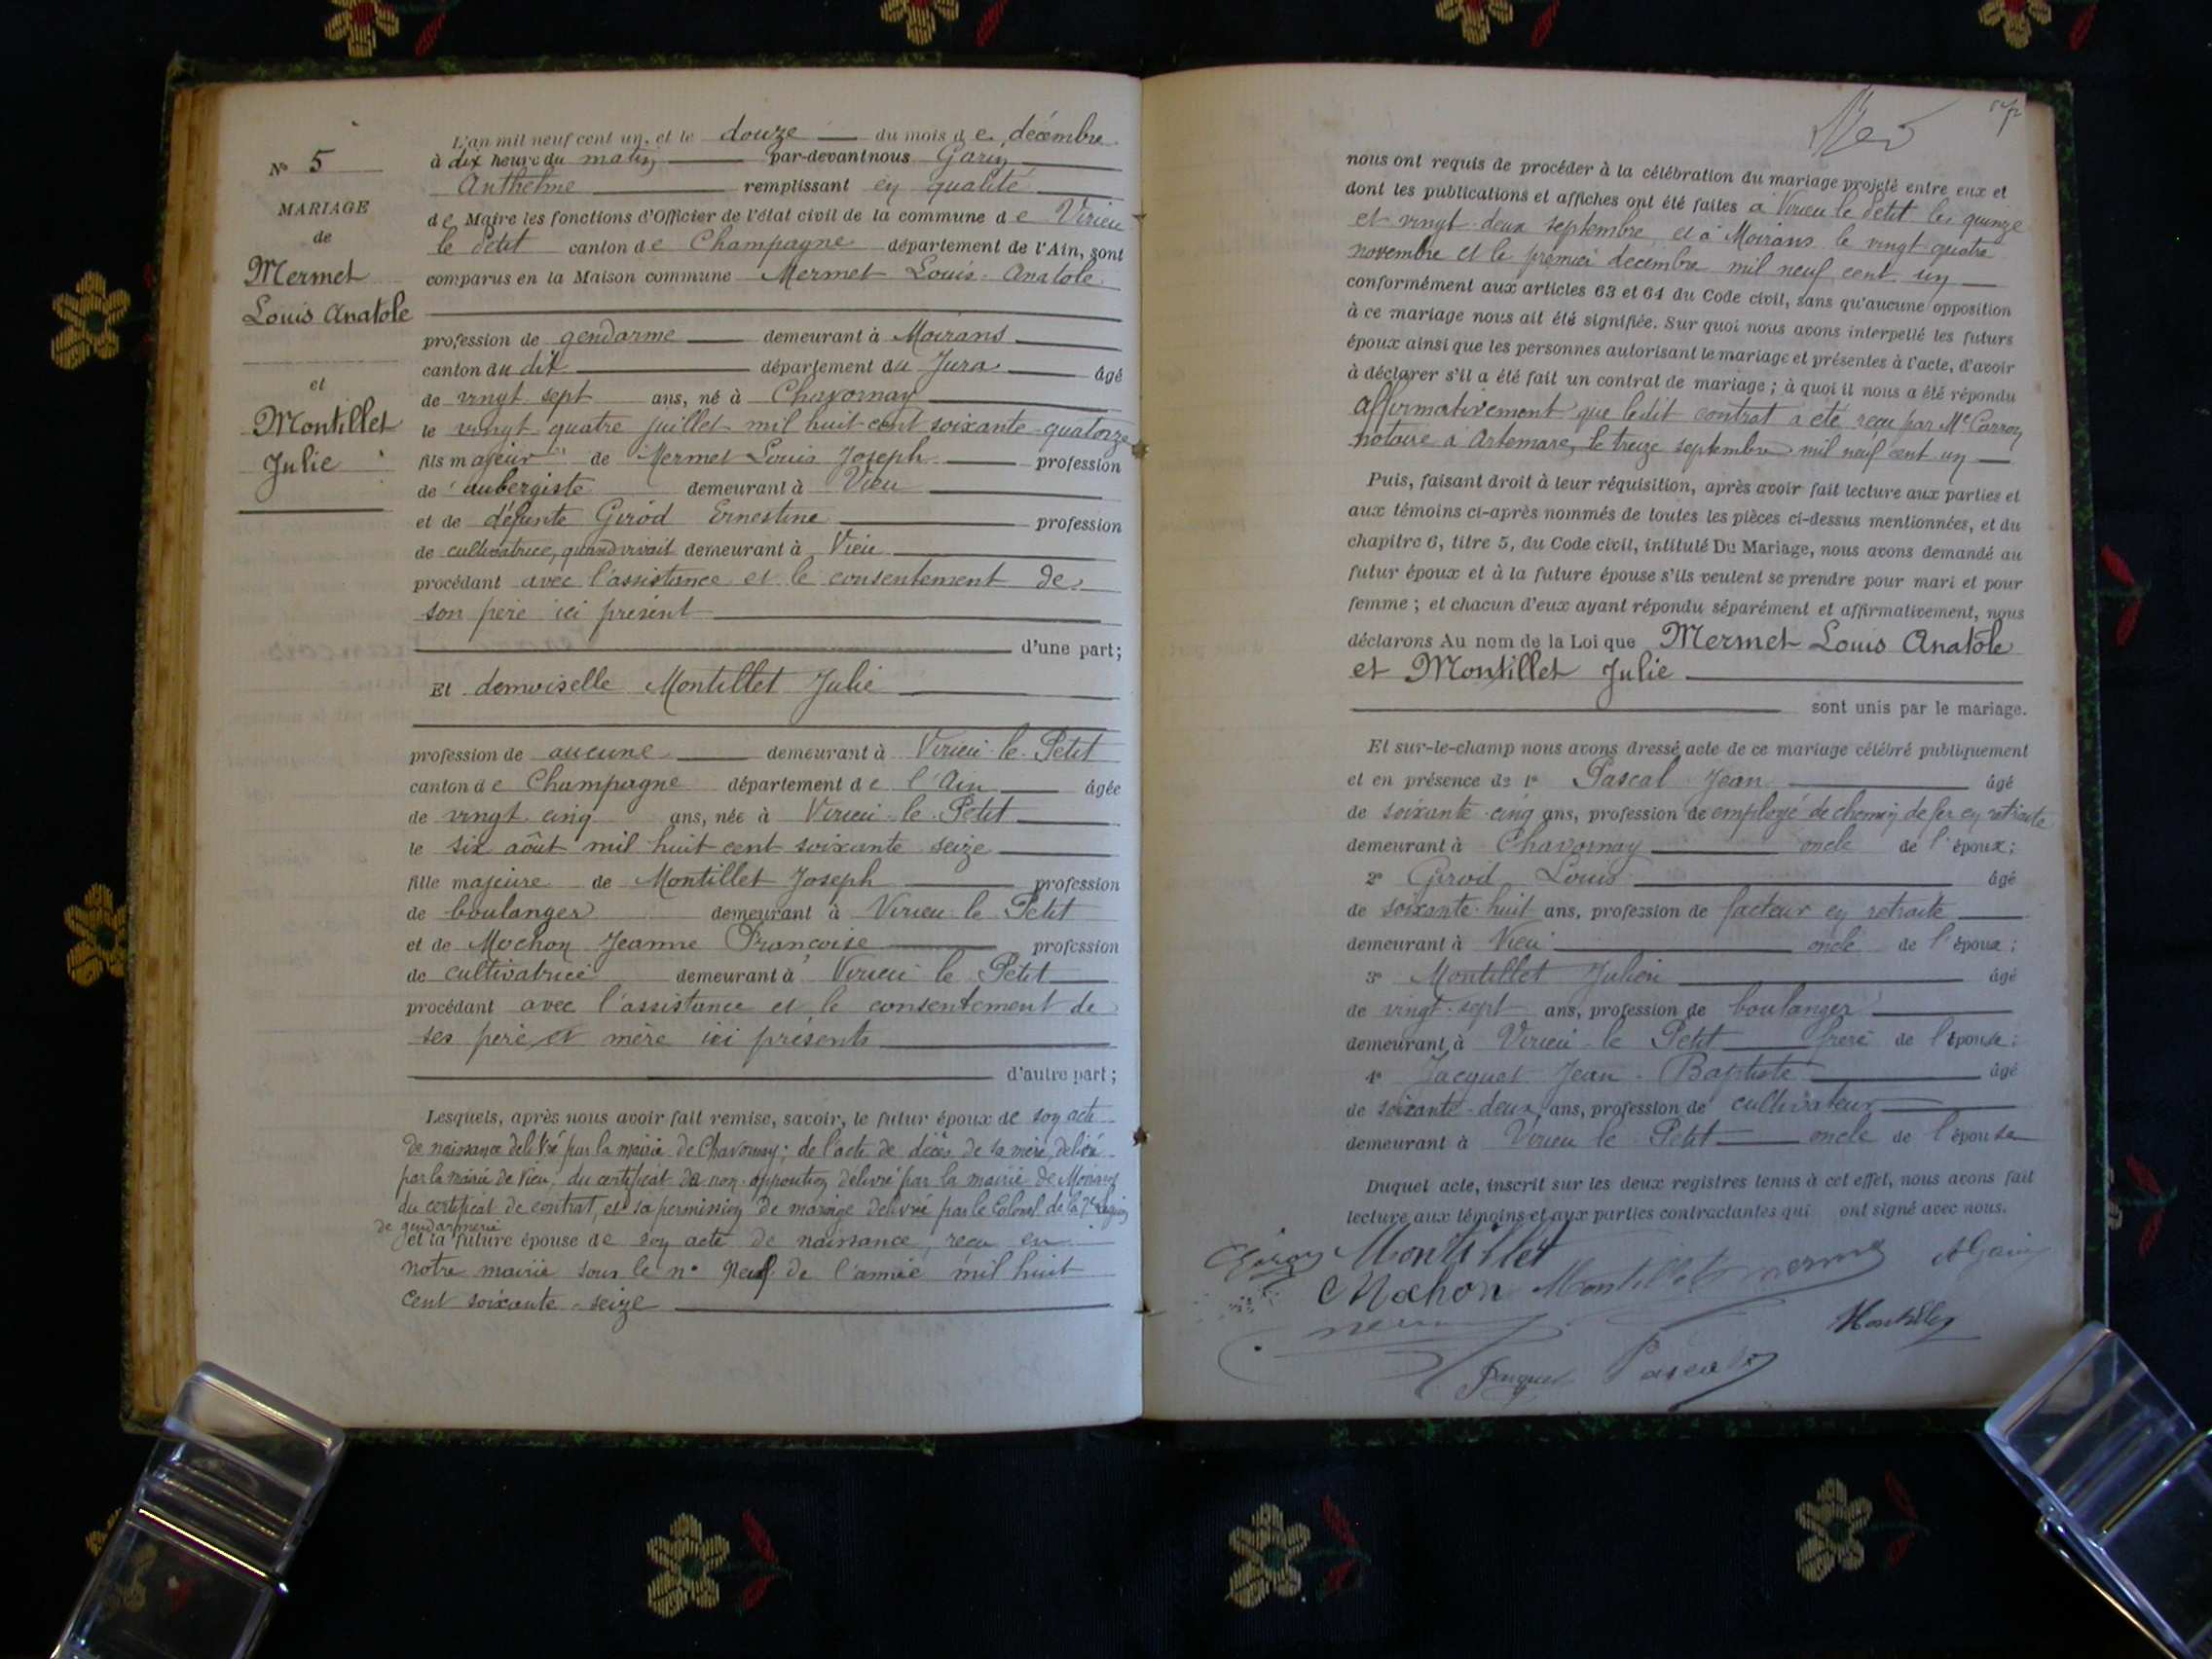 N° 5
MARIAGE
de
Mermet
Louis Anatole
et
Montillet
Julie
L'an mil neuf cent un, et le douze du mois de décembre
à dix heure du matin par-devant nous Garin
Anthelme remplissant en qualité
de Maire les fonctions d'Officier de l'état civil de la commune de Virieu
le Petit canton de Champagne département de l'Ain, sont
comparus en la Maison commune Mermet Louis-Anatole
profession de gendarme demeurant à Moirans
canton du dit département du Jura âgé
de vingt sept ans, né à Chavornay
le vingt-quatre juillet mil huit-cent soixante-quatorze
fils majeur de Mermet Louis Joseph profession
de aubergiste demeurant à Vieu
et de défunte Girod Ernestine profession
de cultivatrice, quand vivait demeurant à Vieu
procédant avec l'assistance et le consentement de
son père ici présent
d'une part;
Et demoiselle Montillet Julie
profession de aucune demeurant à Virieu-le-Petit
canton de Champagne département de l'Ain âgée
de vingt cinq ans, née à Virieu-le-Petit
le six août mil huit cent soixante seize
fille majeure de Montillet Joseph profession
de boulanger demeurant à Virieu le Petit
et de Mochon Jeanne Françoise profession
de cultivatrice demeurant à Virieu le Petit
procédant avec l'assistance et le consentement de
ses père et mère ici présents
d'autre part;
Lesquels, après nous avoir fait remise, savoir, le futur époux de son acte
de naissance délivré par la mairie de Chavornay; de l'acte de décès de sa mère, délivré
par la mairie de Vieu; du certificat de non-opposition délivré par la mairie de Moirans
du certificat de contrat, et sa permission de mariage délivré par le Colonel de la 7e Légion
de gendarmerie
et la future épouse de son acte de naissance, reçu en
notre mairie sous le n° Neuf de l'année mil huit
cent soixante-seize
nous ont requis de procéder à la célébration du mariage projeté entre eux et
dont les publications et affiches ont été faites à Virieu le Petit les quinze
et vingt-deux septembre et à Moirans le vingt-quatre
novembre et le premier décembre mil neuf cent un
conformément aux articles 63 et 64 du Code civil, sans qu'aucune opposition
à ce mariage nous ait été signifiée. Sur quoi nous avons interpellé les futurs
époux ainsi que les personnes autorisant le mariage et présentes à l'acte, d'avoir
à déclarer s'il a été fait un contrat de mariage; à quoi il nous a été répondu
affirmativement que ledit contrat a été reçu par Me Carron
notaire à Artemare, le treize septembre mil neuf cent un
Puis, faisant droit à leur réquisition, après avoir fait lecture aux parties et
aux témoins ci-après nommés de toutes les pièces ci-dessus mentionnées, et du
chapitre 6, titre 5, du Code civil, intitulé Du Mariage, nous avons demandé au
futur époux et à la future épouse s'ils veulent se prendre pour mari et pour
femme; et chacun d'eux ayant répondu séparément et affirmativement, nous
déclarons Au nom de la Loi que Mermet Louis Anatole
et Montillet Julie
sont unis par le mariage.
Et sur-le-champ nous avons dressé acte de ce mariage célébré publiquement
et en présence de 1° Pascal Jean âgé
de soixante-cinq ans, profession de employé de chemin de fer en retraite
demeurant à Chavornay oncle de l'époux;
2° Girod Louis âgé
de soixante-huit ans, profession de facteur en retraite
demeurant à Vieu oncle de l'époux;
3° Montillet Julien âgé
de vingt-sept ans, profession de boulanger
demeurant à Virieu-le Petit frère de l'épouse;
4° Jacquet Jean-Baptiste âgé
de soixante-deux ans, profession de cultivateur
demeurant à Virieu le Petit oncle de l'épouse
Duquel acte, inscrit sur les deux registres tenus à cet effet, nous avons fait
lecture aux témoins et aux parties contractantes qui ont signé avec nous.
Montillet
Mochon Montillet Mermet AGarin
Montillet
Jacquet Pascal